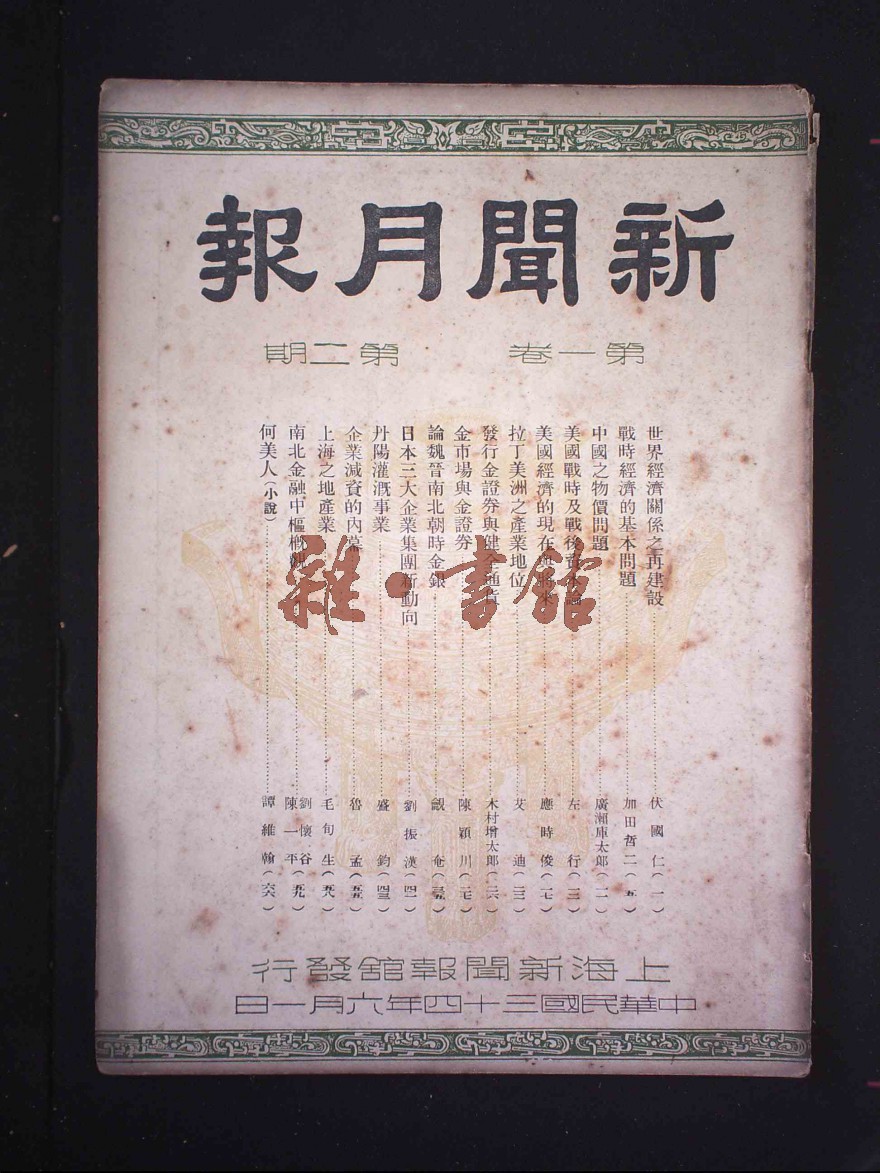 新聞月報
第一卷 第二期
世界經濟關係之再建設 伏國仁(一)
戰時經濟的基本問題 加田哲二(五)
中國之物價問題 廣瀨庫太郎(一一)
美國戰時及戰後資本論 左行(一三)
美國經濟的現在與將來 應時俊(一七)
拉丁美洲之產業地位 艾迪(二三)
發行金證券與健全通貨 木村增太郎(二六)
金市場與金證券 陳穎川(二七)
論魏晉南北朝時金銀 觀奄(三五)
日本三大企業集團新動向 劉振漢(四一)
丹陽灌溉事業 盛鈞(四三)
企業減資的內幕 魯孟(五五)
上海之地產業 毛旬生(五八)
南北金融中樞概觀 劉懷谷 陳一平(五九)
何美人(小說) 譚維翰(六六)
雜·書館
上海新聞報館發行
中華民國三十四年六月一日